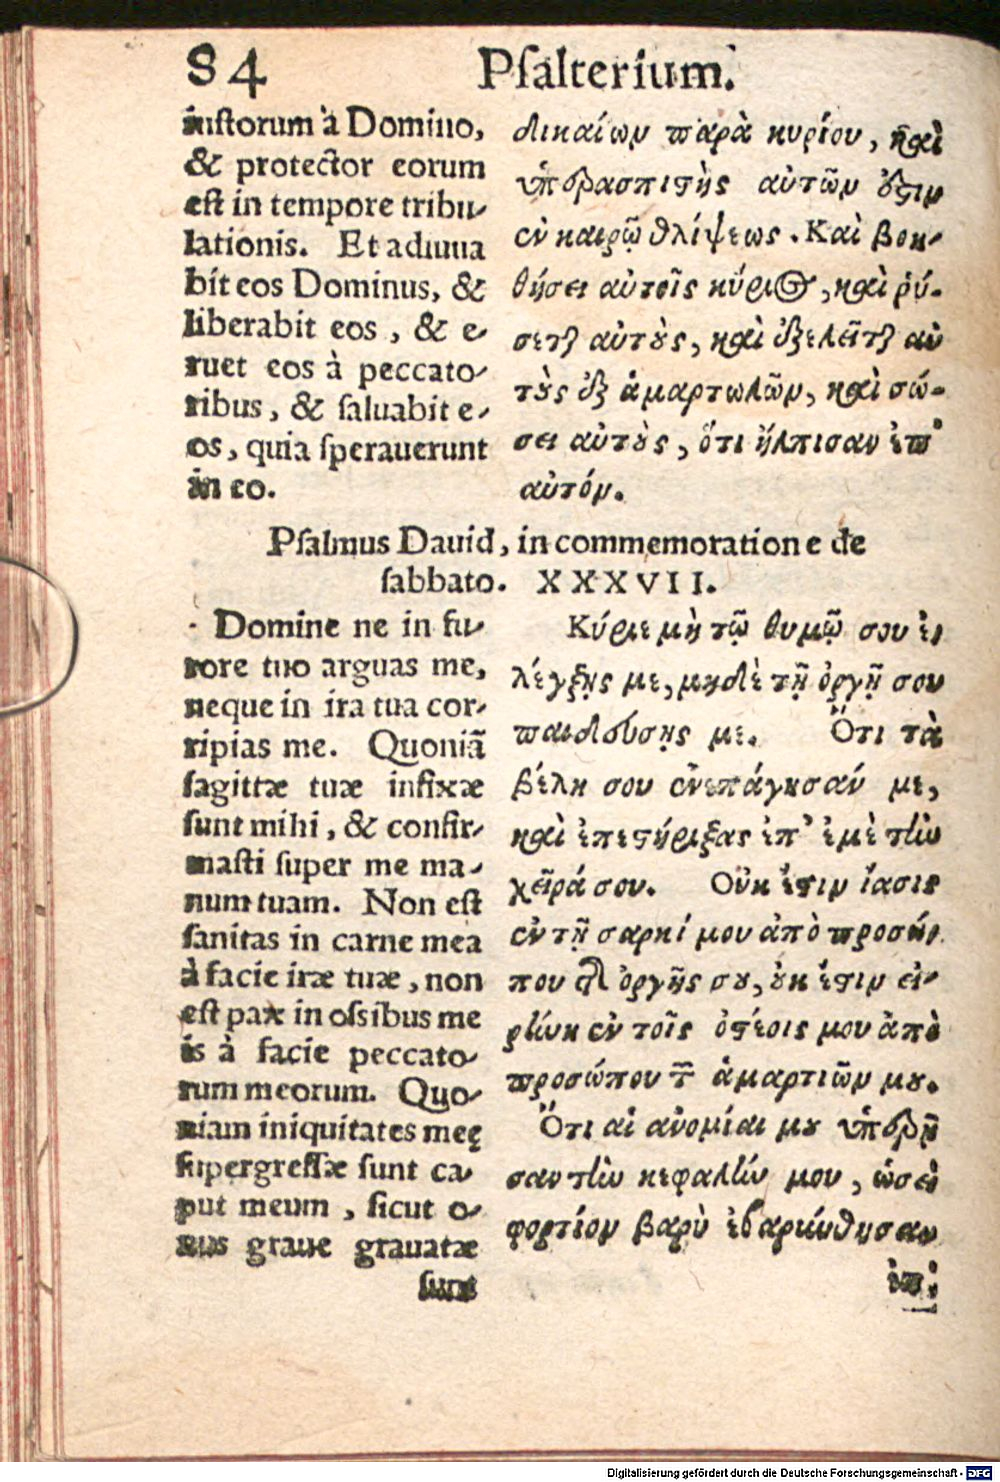 84 Psalterium.
iustorum à Domino,
& protector eorum
est in tempore tribu-
lationis. Et adiuua
bit eos Dominus, &
liberabit eos, & e-
ruet eos à peccato-
ribus, & saluabit e-
os, quia sperauerunt
in eo.
δικαίων παρὰ κυρίου, καὶ
ὑπερασπιστὴς αὐτῶν ἐστιν
ἐν καιρῷ θλίψεως. Καὶ βοη-
θήσει αὐτοῖς κύριος, καὶ ῥύ-
σεται αὐτοὺς, καὶ ἐξελεῖται αὐ
τοὺς ἐξ ἁμαρτωλῶν, καὶ σώ-
σει αὐτοὺς, ὅτι ἤλπισαν ἐπ'
αὐτόν.
Psalmus Dauid, in commemoratione de
sabbato. XXXVII.
Domine ne in fu-
rore tuo arguas me,
neque in ira tua cor-
ripias me. Quoniã
sagittæ tuæ infixæ
sunt mihi, & confir-
masti super me ma-
num tuam. Non est
sanitas in carne mea
à facie iræ tuæ, non
est pax in ossibus me
is à facie peccato-
rum meorum. Quo-
niam iniquitates meę
supergressæ sunt ca-
put meum, sicut o-
nus graue grauatæ
sunt
Κύριε μὴ τῷ θυμῷ σου ἐ-
λέγξῃς με, μηδὲ τῇ ὀργῇ σου
παιδεύσῃς με. Ὅτι τὰ
βέλη σου ἐνεπάγησαν με,
καὶ ἐπεστήριξας ἐπ' ἐμὲ τὴν
χεῖρά σου. Οὐκ ἔστιν ἴασις
ἐν τῇ σαρκί μου ἀπὸ προσώ-
που τῆς ὀργῆς σου, οὐκ ἔστιν εἰ-
ρήνη ἐν τοῖς ὀστέοις μου ἀπὸ
προσώπου τῶν ἁμαρτιῶν μου.
Ὅτι αἱ ἀνομίαι μου ὑπερῆ-
σαν τὴν κεφαλήν μου, ὡσεὶ
φορτίον βαρὺ ἐβαρύνθησαν
ἐπ'
Digitalisierung gefördert durch die Deutsche Forschungsgemeinschaft - DFG